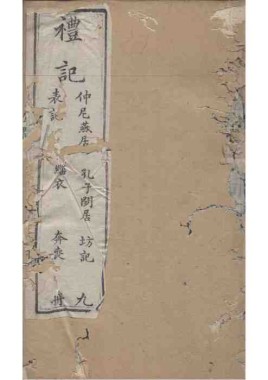 禮記
仲尼燕居 孔子閒居 坊記 九
表記 緇衣 奔喪 冊